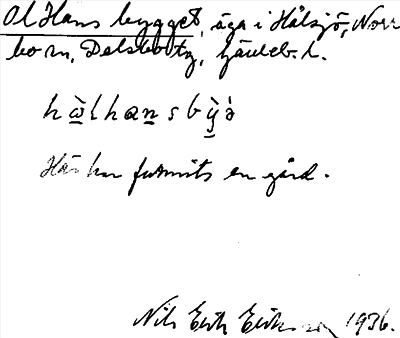 Ol Hans bygget, äga i Hålsjö, Norr
bo sn, Delsbo tg, Gävleb. l.
hὼlhansbỳ̱ə̀
Här har funnits en gård.
Nils Erik Eriksson 1936.